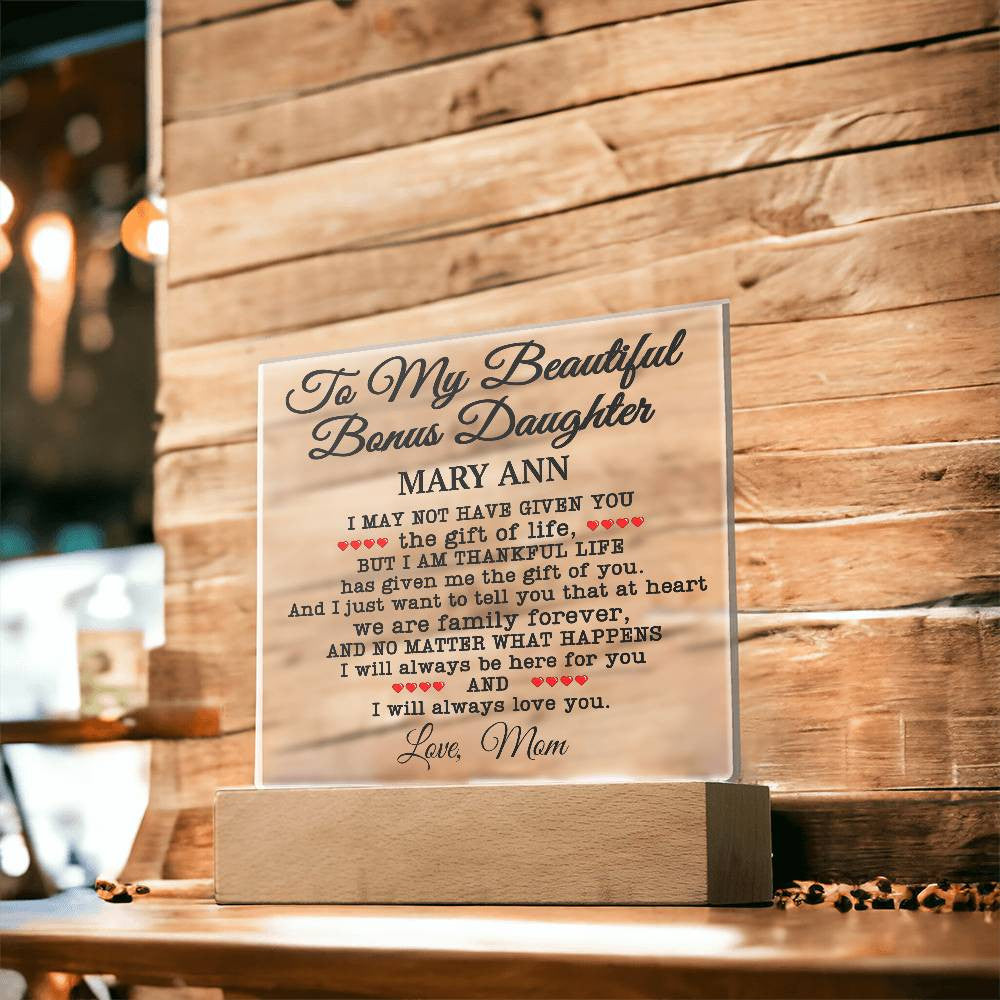 To My Beautiful
Bonus Daughter
MARY ANN
I MAY NOT HAVE GIVEN YOU
the gift of life,
BUT I AM THANKFUL LIFE
has given me the gift of you.
And I just want to tell you that at heart
we are family forever,
AND NO MATTER WHAT HAPPENS
I will always be here for you
AND
I will always love you.
Love, Mom